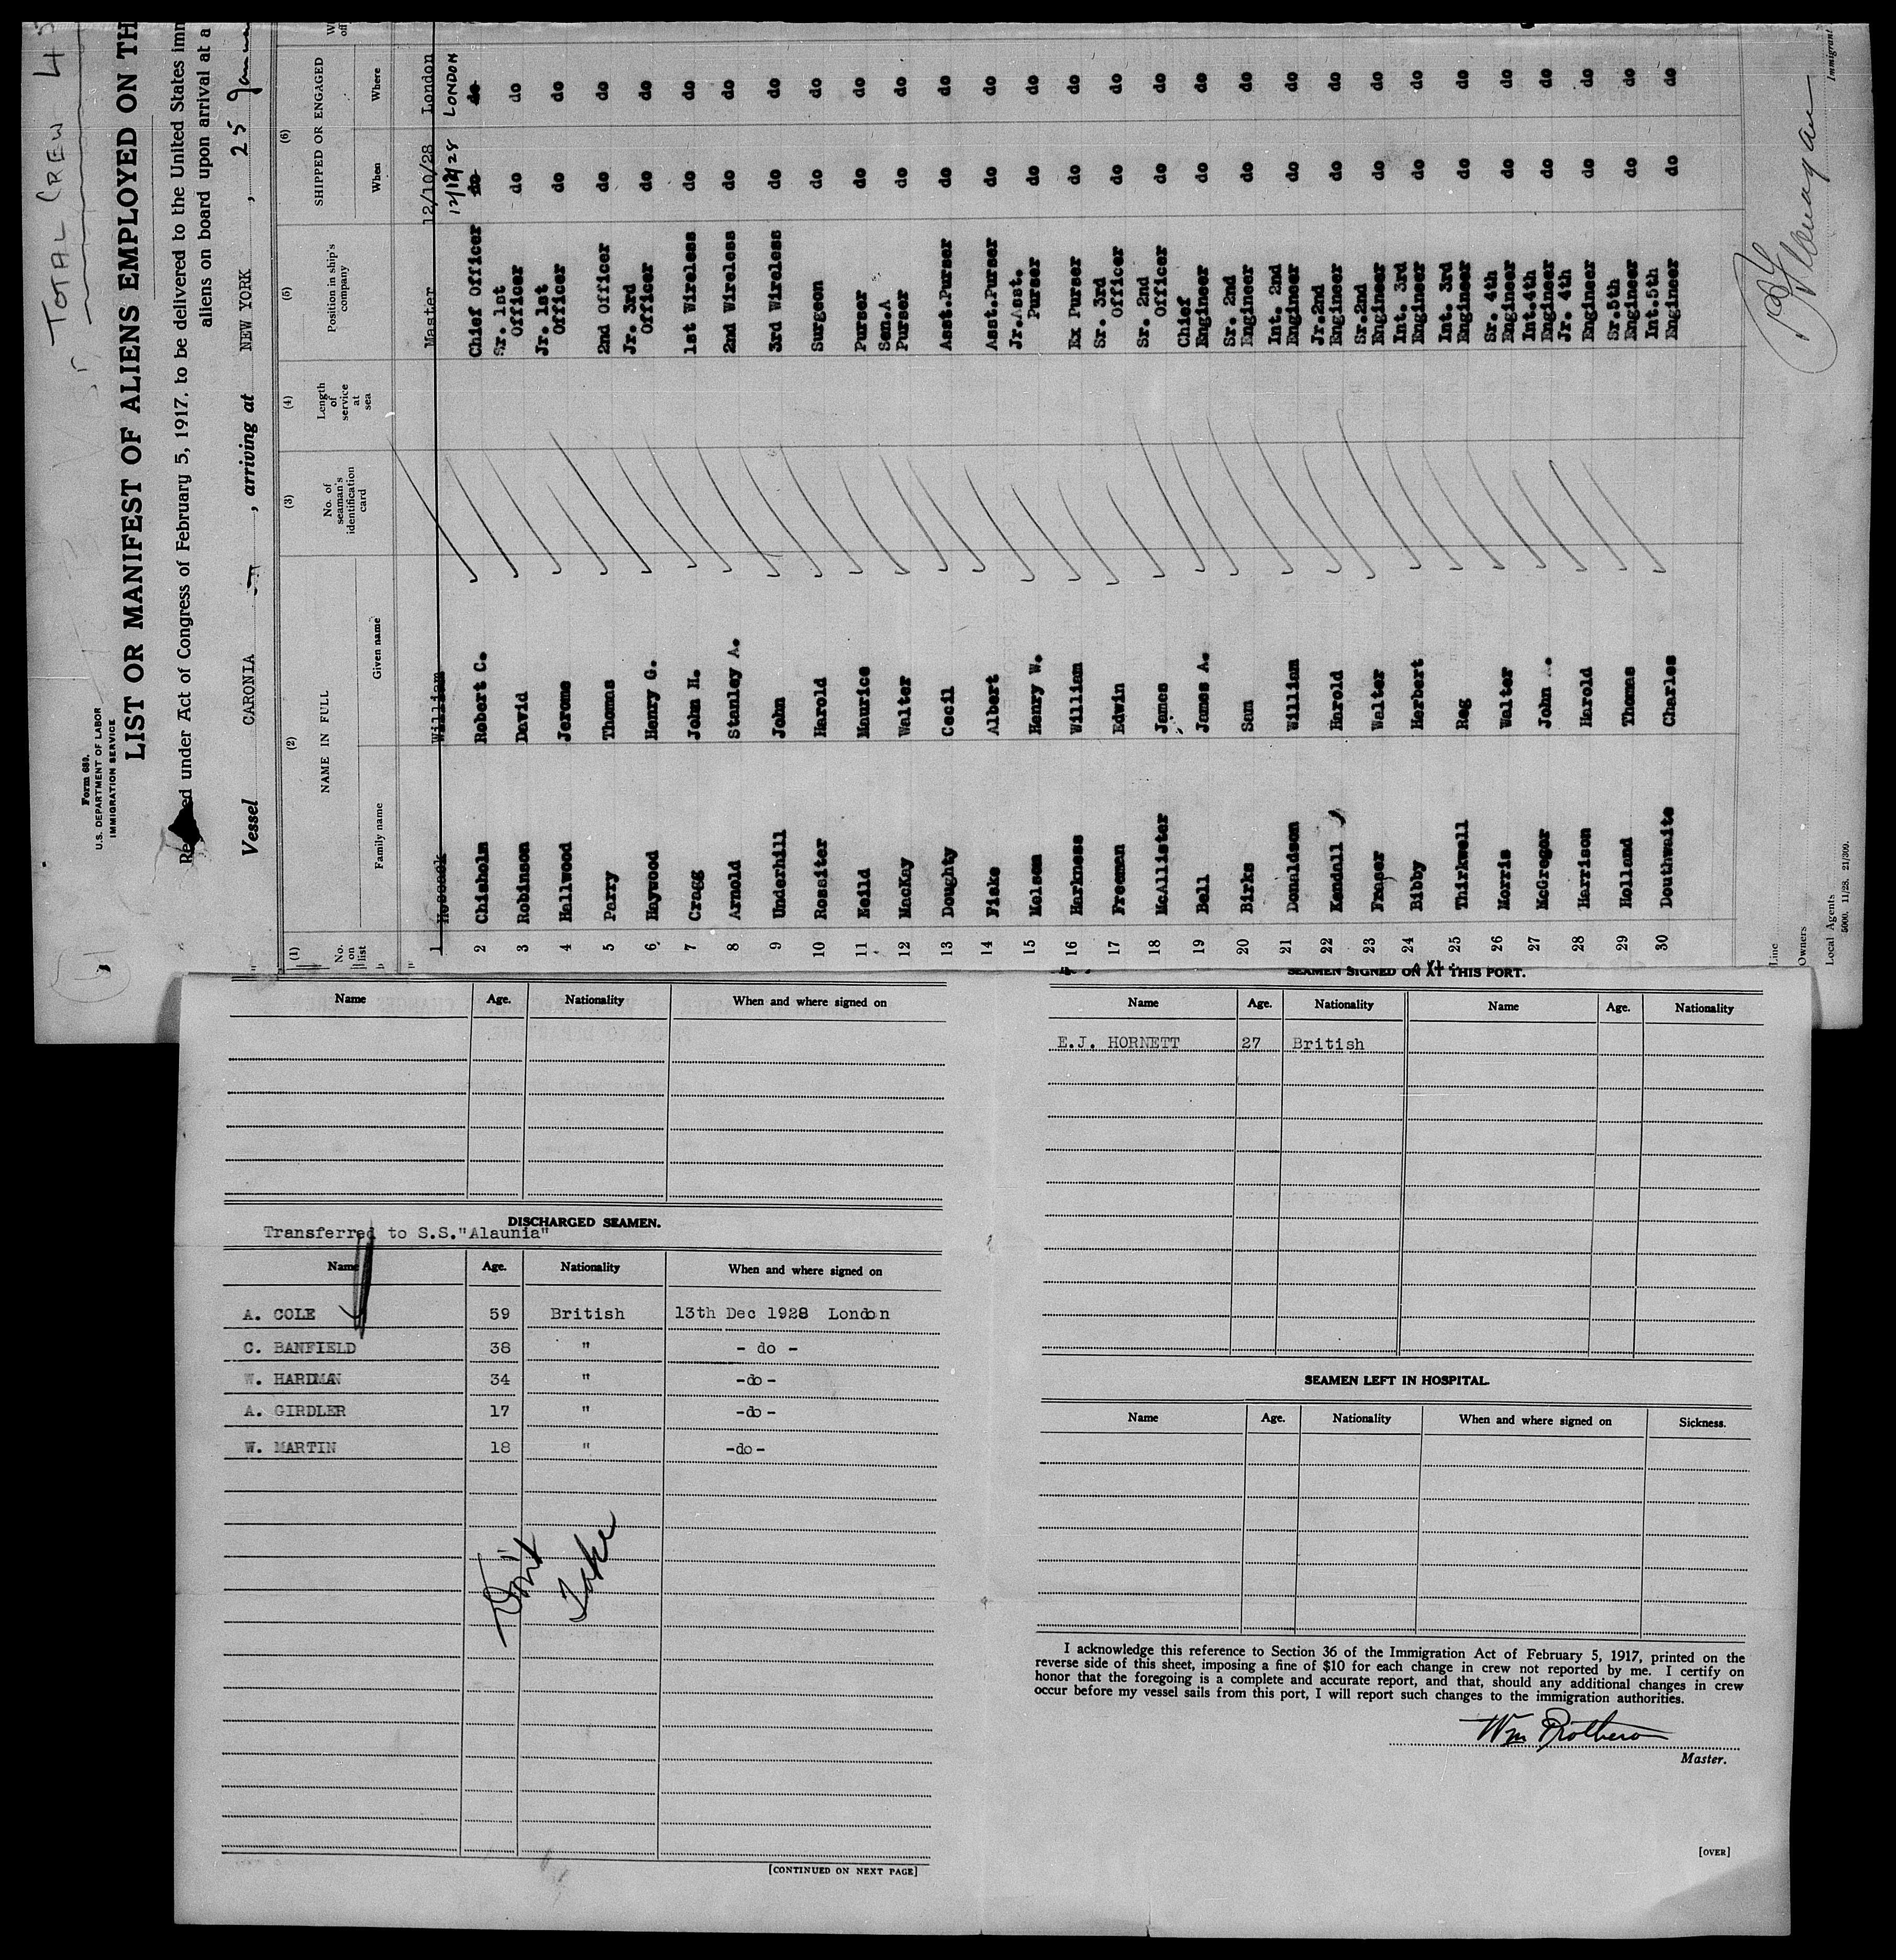 TOTAL CREW 4
Form 689.
U.S. DEPARTMENT OF LABOR
IMMIGRATION SERVICE
LIST OR MANIFEST OF ALIENS EMPLOYED ON TH
under Act of Congress of February 5, 1917, to be delivered to the United States imm
aliens on board upon arrival at a
Vessel CARONIA , arriving at NEW YORK , 25
(1) (2) (3) (4) (5) (6)
No. on list NAME IN FULL No. of seaman's identification card Length of service at sea Position in ship's company SHIPPED OR ENGAGED
Family name Given name When Where
1 Hossack William Master 12/10/28 London
2 Chisholm Robert C. Chief Officer do 12/12/28 do LONDON
3 Robinson David Sr. 1st Officer do do
4 Hallwood Jerome Jr. 1st Officer do do
5 Parry Thomas 2nd Officer do do
6 Haywood Henry G. Jr. 3rd Officer do do
7 Cragg John H. 1st Wireless do do
8 Arnold Stanley A. 2nd Wireless do do
9 Underhill John 3rd Wireless do do
10 Rossiter Harold Surgeon do do
11 Neild Maurice Purser do do
12 MacKay Walter Sen.A Purser do do
13 Doughty Cecil Asst.Purser do do
14 Fiske Albert Asst.Purser do do
15 Melsom Henry W. Jr.Asst. Purser do do
16 Harkness William Ex Purser do do
17 Freeman Edwin Sr. 3rd Officer do do
18 McAllister James Sr. 2nd Officer do do
19 Bell James A. Chief Engineer do do
20 Birks Sam Sr. 2nd Engineer do do
21 Donaldson William Int. 2nd Engineer do do
22 Kendall Harold Jr.2nd Engineer do do
23 Fraser Walter Sr.2nd Engineer do do
24 Bibby Herbert Int. 3rd Engineer do do
25 Thirkwell Reg Int. 3rd Engineer do do
26 Morris Walter Sr. 4th Engineer do do
27 McGregor John Int.4th Engineer do do
28 Harrison Harold Jr. 4th Engineer do do
29 Holland Thomas Sr.5th Engineer do do
30 Douthwaite Charles Int.5th Engineer do do
Line
Owners
Local Agents
5000. 11/28. 21/309.
Immigrant
Name Age. Nationality When and where signed on
DISCHARGED SEAMEN.
Transferred to S.S."Alaunia"
Name Age. Nationality When and where signed on
A. COLE 59 British 13th Dec 1928 London
C. BANFIELD 38 " - do -
W. HARDMAN 34 " -do-
A. GIRDLER 17 " -do-
W. MARTIN 18 " -do-
Don't
Take
[CONTINUED ON NEXT PAGE]
SEAMEN SIGNED ON AT THIS PORT.
Name Age. Nationality Name Age. Nationality
E.J. HORNETT 27 British
SEAMEN LEFT IN HOSPITAL.
Name Age. Nationality When and where signed on Sickness.
I acknowledge this reference to Section 36 of the Immigration Act of February 5, 1917, printed on the
reverse side of this sheet, imposing a fine of $10 for each change in crew not reported by me. I certify on
honor that the foregoing is a complete and accurate report, and that, should any additional changes in crew
occur before my vessel sails from this port, I will report such changes to the immigration authorities.
Wm Prothero
Master.
[OVER]